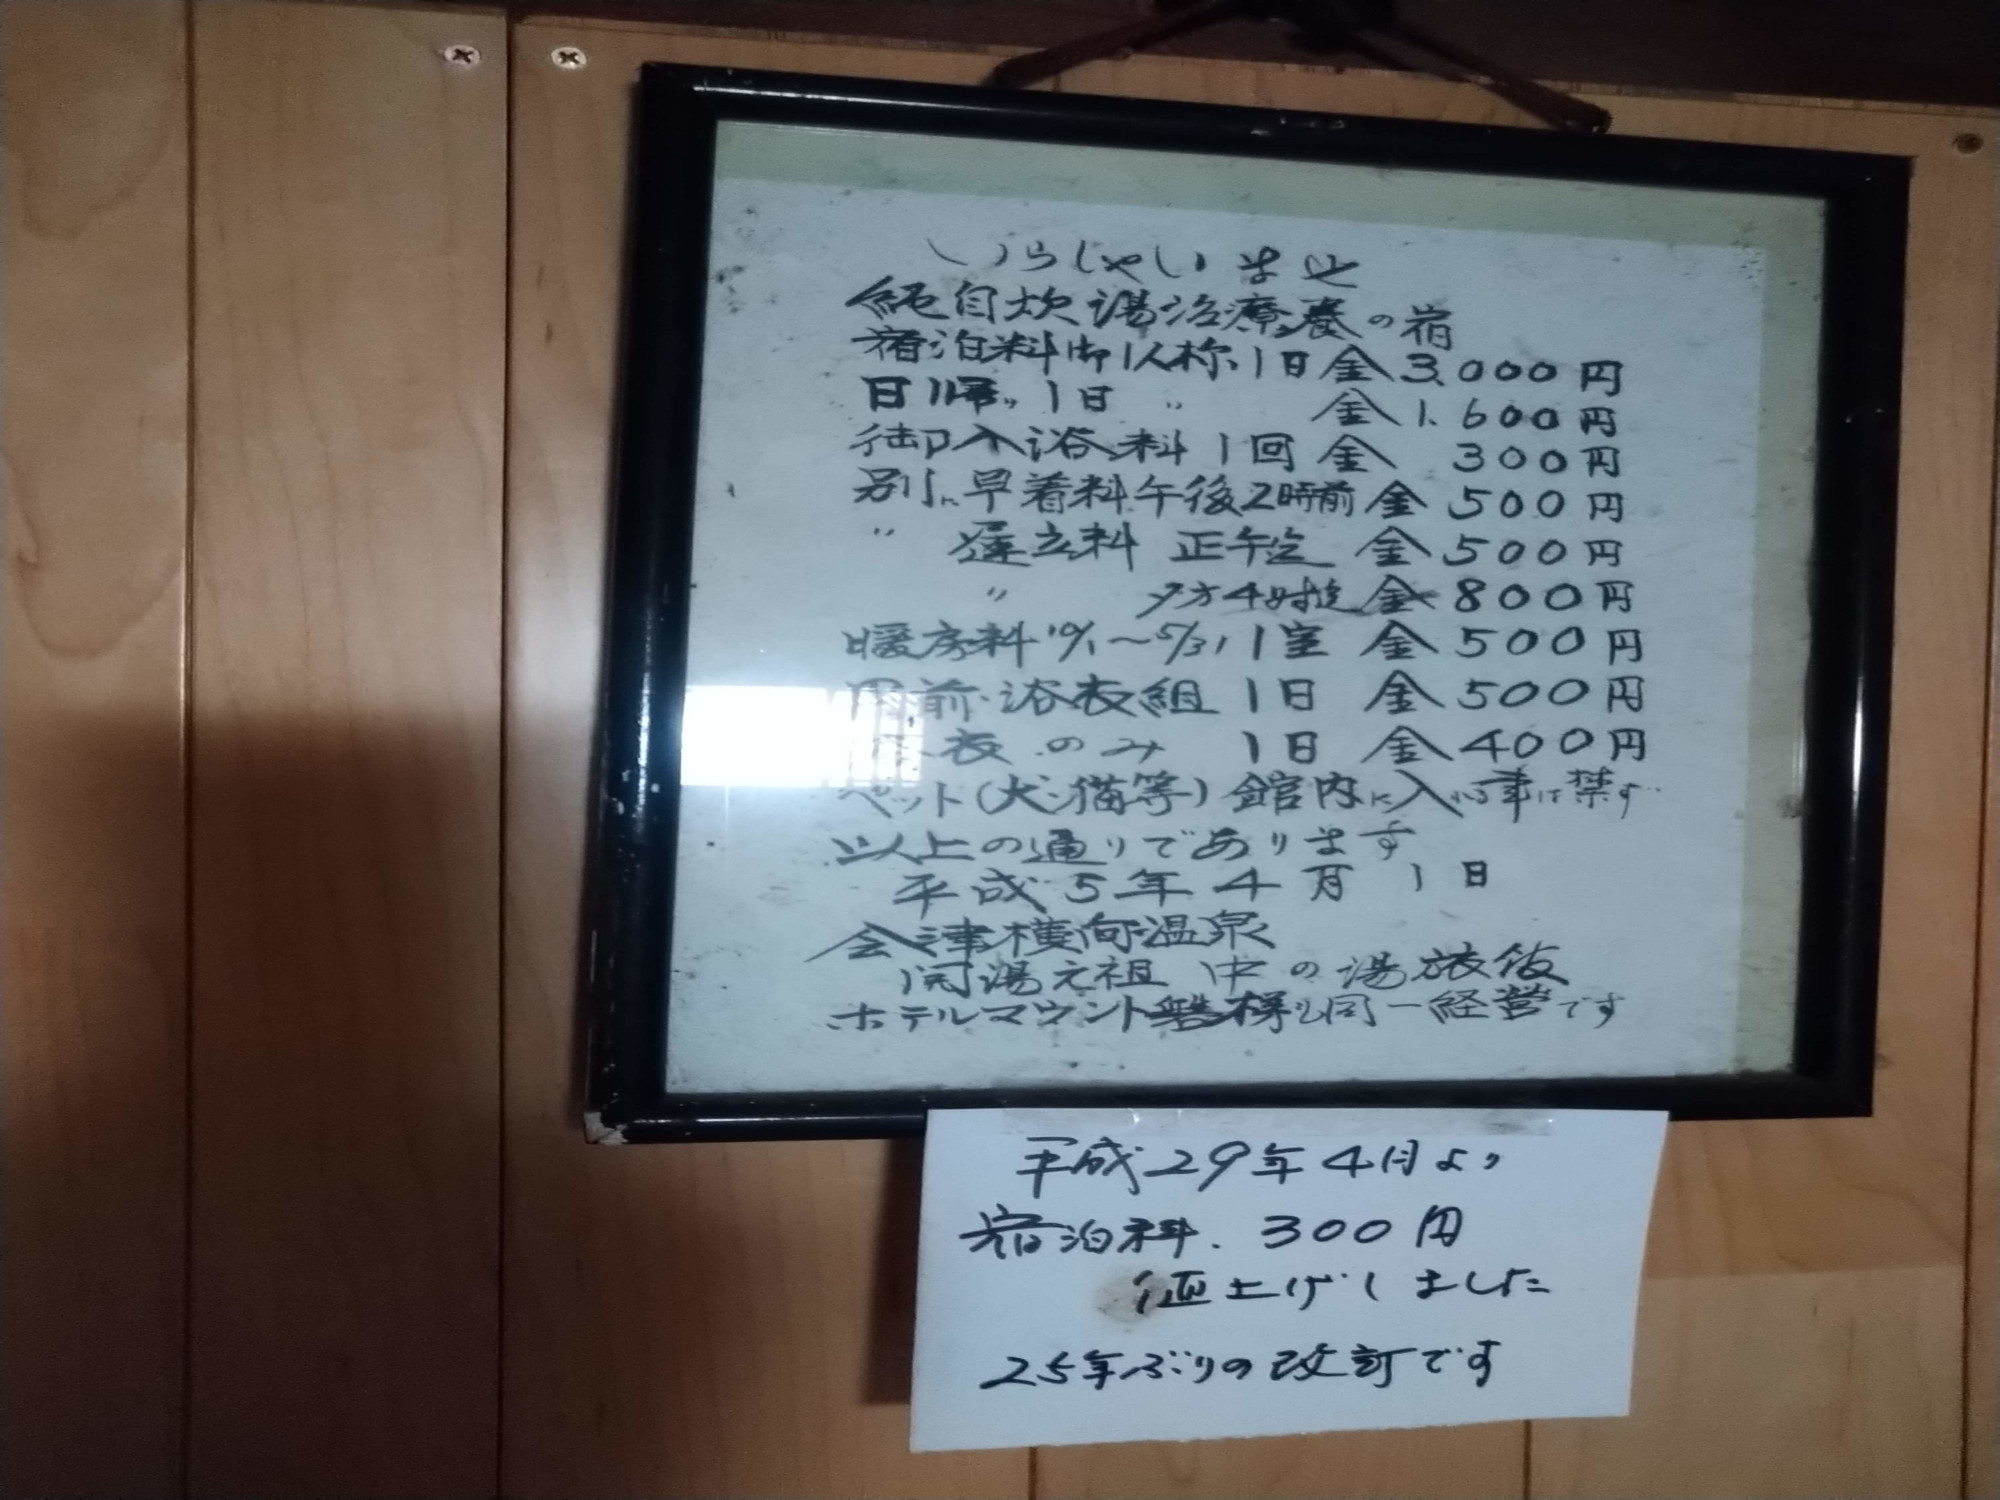 いらしゃいませ
純自炊湯治療養の宿
宿泊料御1人様、1日 金3.000円
日帰〃 1日 〃 金1.600円
御入浴料 1回 金 300円
別に早着料午後2時前 金 500円
〃 遅立料 正午迄 金 500円
〃 夕方4時迄 金 800円
暖房料 10/1～5/31 1室 金 500円
丹前・浴衣組 1日 金 500円
浴衣のみ 1日 金 400円
ペット(犬・猫等)館内に入る事は禁ず
以上の通りであります
平成5年4月1日
会津横向温泉
開湯元祖 中の湯旅館
ホテルマウント磐梯も同一経営です
平成29年4月より
宿泊料. 300円
値上げしました
25年ぶりの改訂です